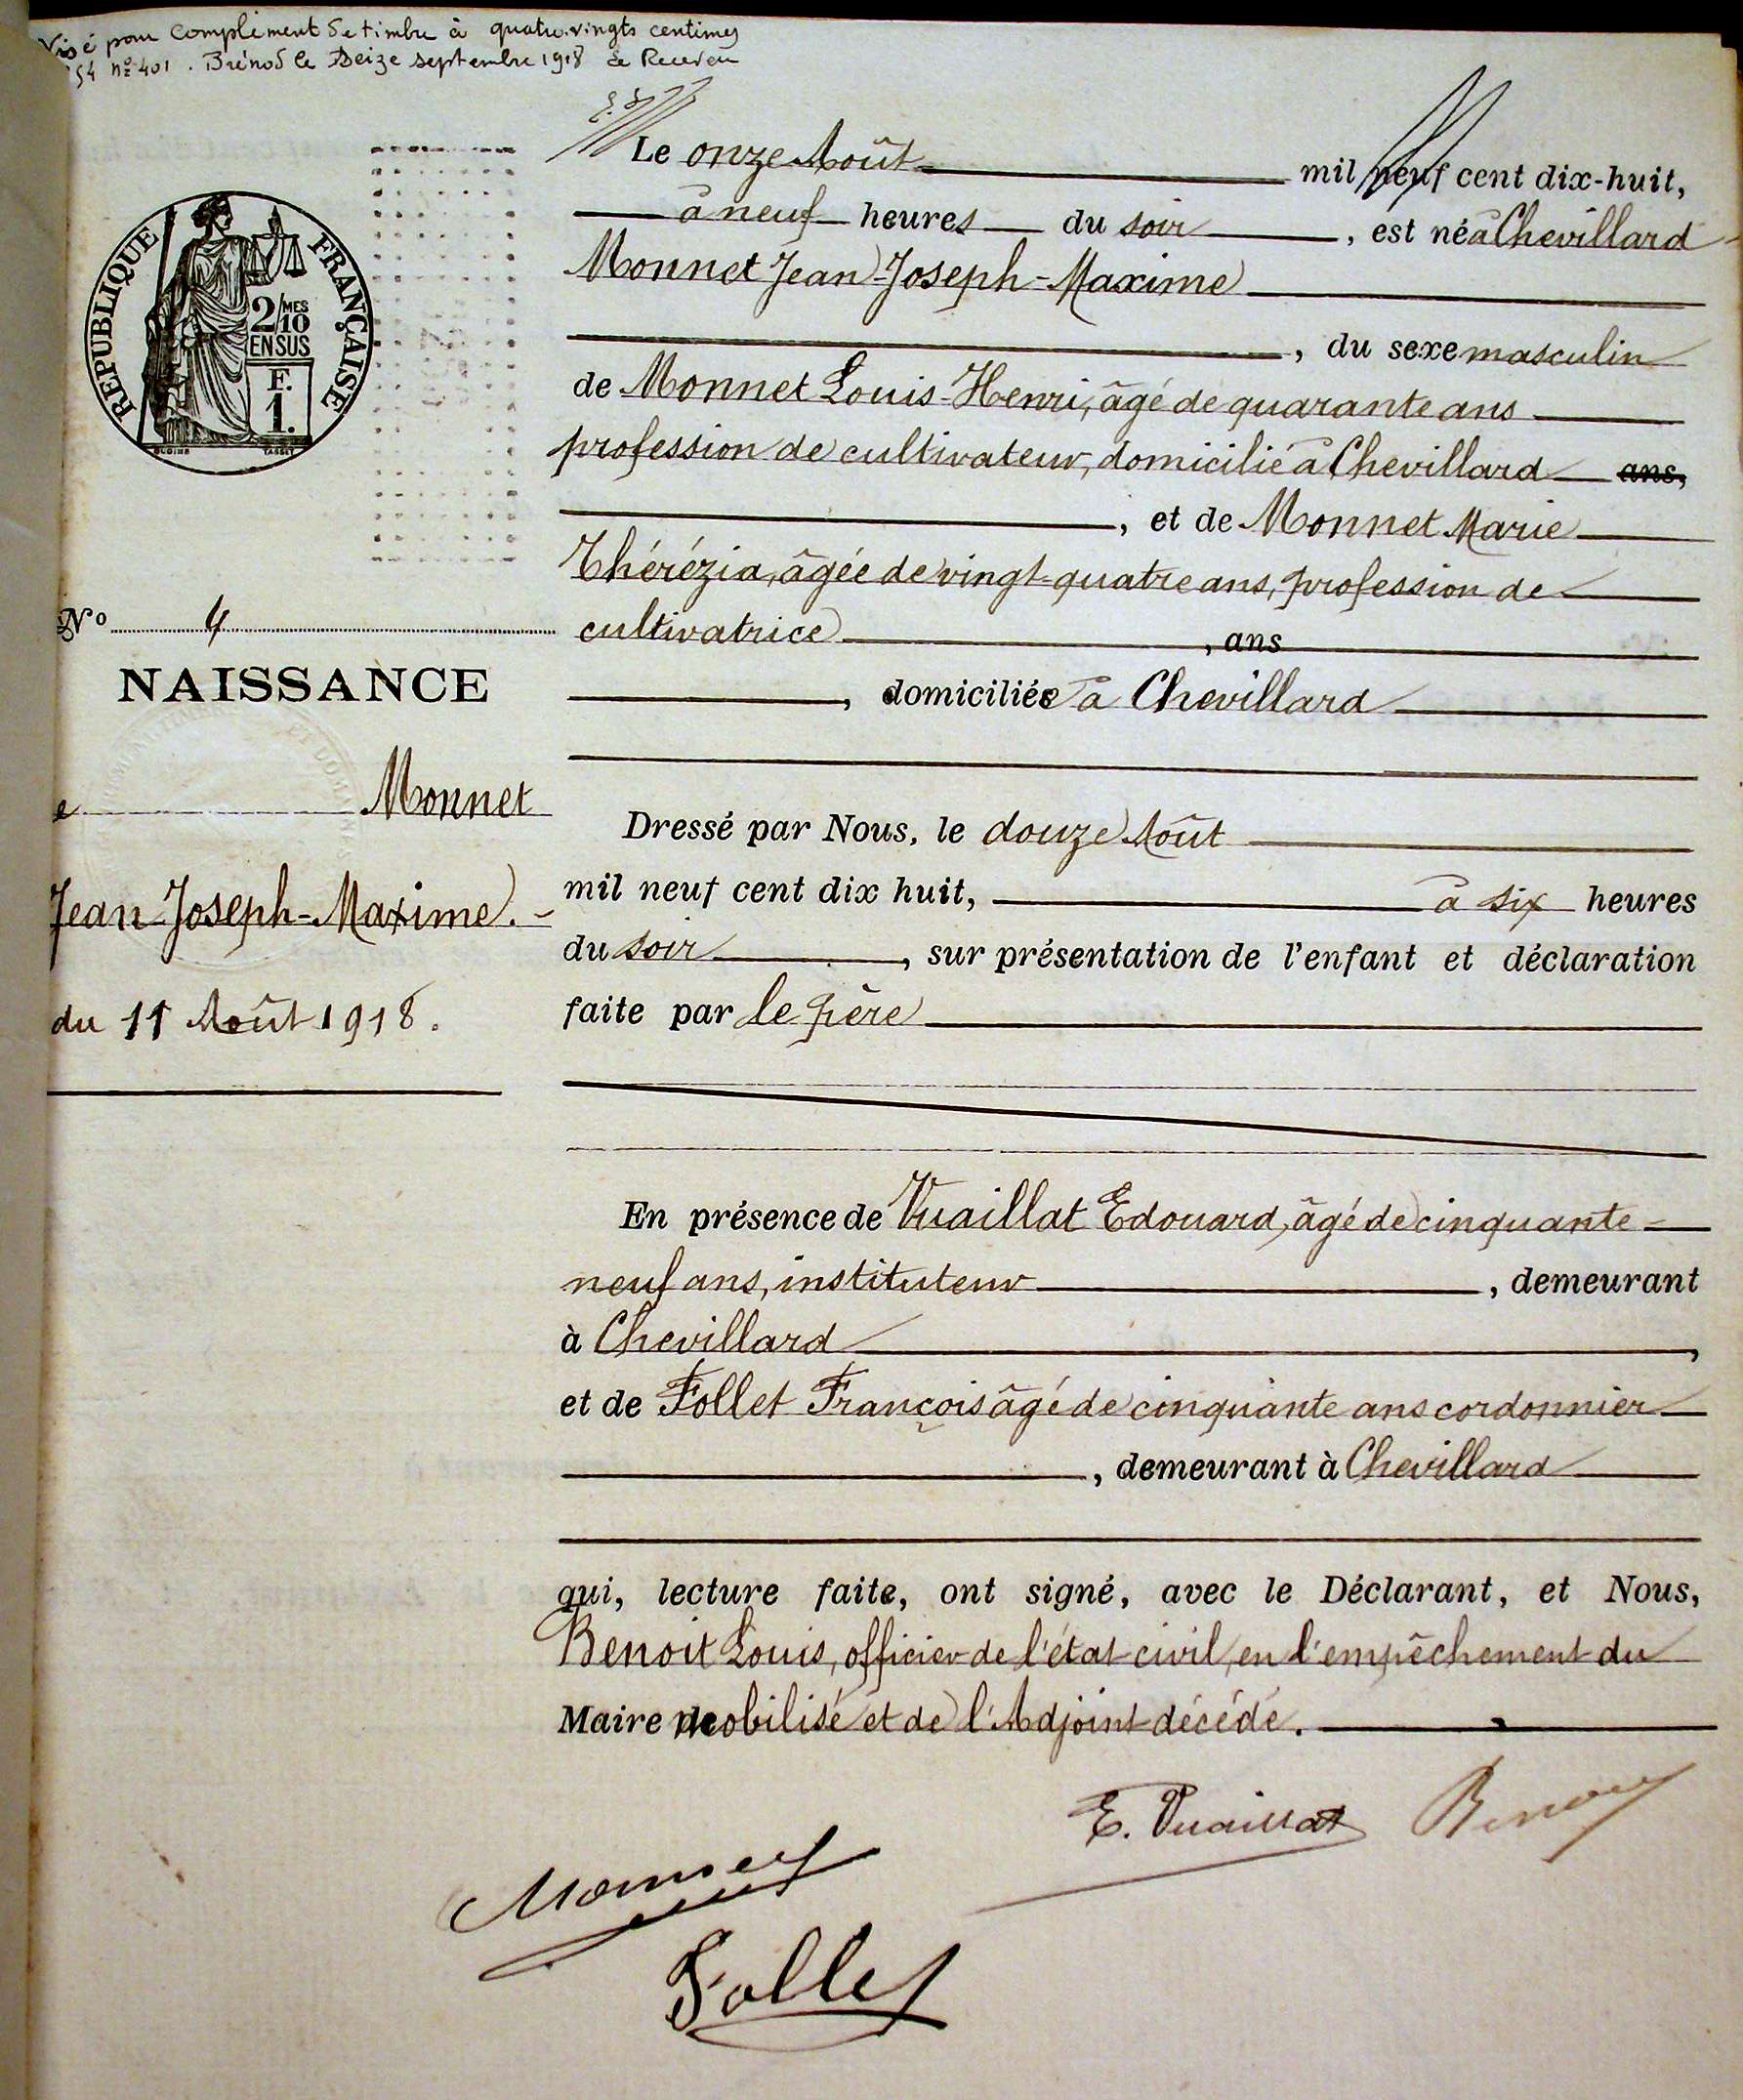 Visé pour complément de timbre à quatre-vingts centimes
54 nº 401. Brénod le seize septembre 1918 Le Receveur
Le onze Août mil neuf cent dix-huit,
à neuf heures du soir, est né à Chevillard
Monnet Jean-Joseph-Maxime
, du sexe masculin
de Monnet Louis-Henri, âgé de quarante ans
profession de cultivateur, domicilié à Chevillard ans,
, et de Monnet Marie
Thérézia, âgée de vingt-quatre ans, profession de
cultivatrice, ans
, domiciliée à Chevillard
RÉPUBLIQUE FRANÇAISE
2/10 MES
EN SUS
F.
1.
TASSET
Nº 4
NAISSANCE
e Monnet
Jean-Joseph-Maxime.-
du 11 Août 1918.
Dressé par Nous, le douze Août
mil neuf cent dix huit, à six heures
du soir, sur présentation de l'enfant et déclaration
faite par le père
En présence de Vuaillat Edouard, âgé de cinquante-
neuf ans, instituteur, demeurant
à Chevillard,
et de Follet François âgé de cinquante ans cordonnier
, demeurant à Chevillard
qui, lecture faite, ont signé, avec le Déclarant, et Nous,
Benoit Louis, officier de l'état-civil, en l'empêchement du
Maire mobilisé et de l'Adjoint décédé.
E. Vuaillat Benoit
Monnet
Follet